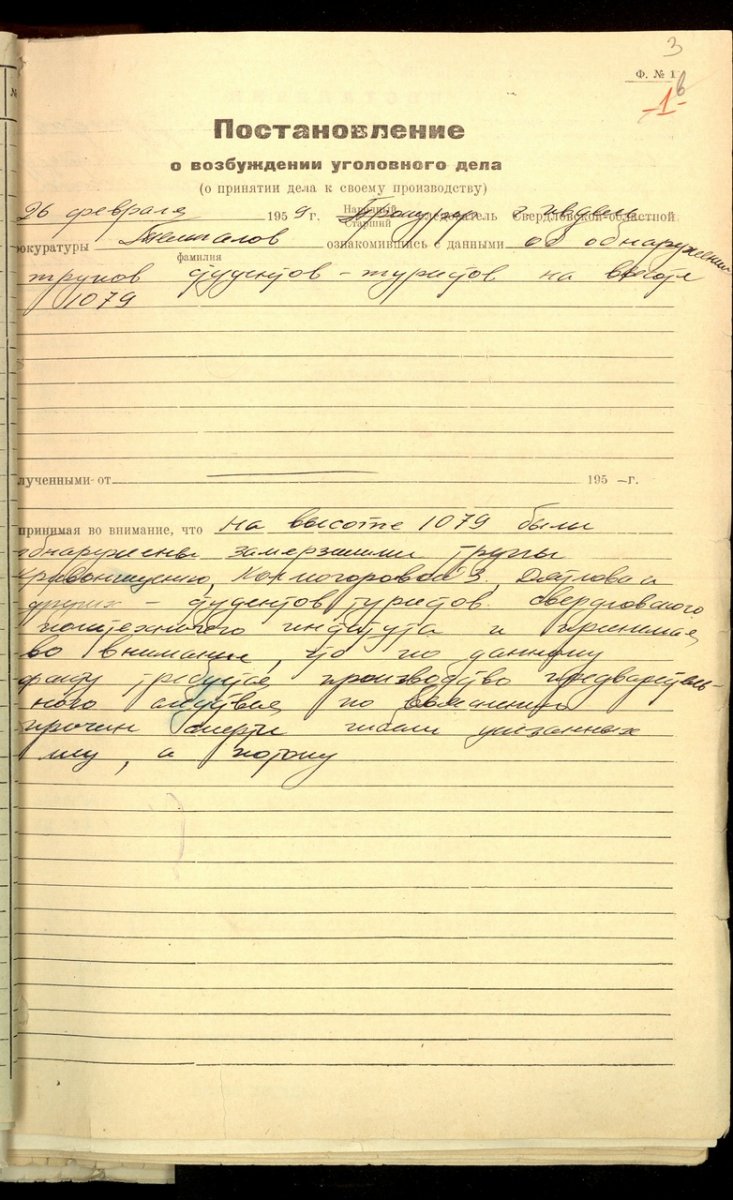 3
Ф. № 1
в
-1-
Постановление
о возбуждении уголовного дела
(о принятии дела к своему производству)
26 февраля 1959 г. Народный Старший Прокурор следователь Свердловской областной г. Ивдель
рокуратуры Темпалов ознакомившись с данными об обнаружении
фамилия
трупов студентов-туристов на высоте
1079
лученными от 195 – г.
принимая во внимание, что на высоте 1079 были
обнаружены замерзшими трупы
Кривонищенко, Колмогоровой З, Дятлова и
других – студентов туристов свердловского
института и принимая
во внимание, что по данному
факту требуется производство предваритель-
ного следствия по выяснению
причин смерти указанных
лиц, а потому